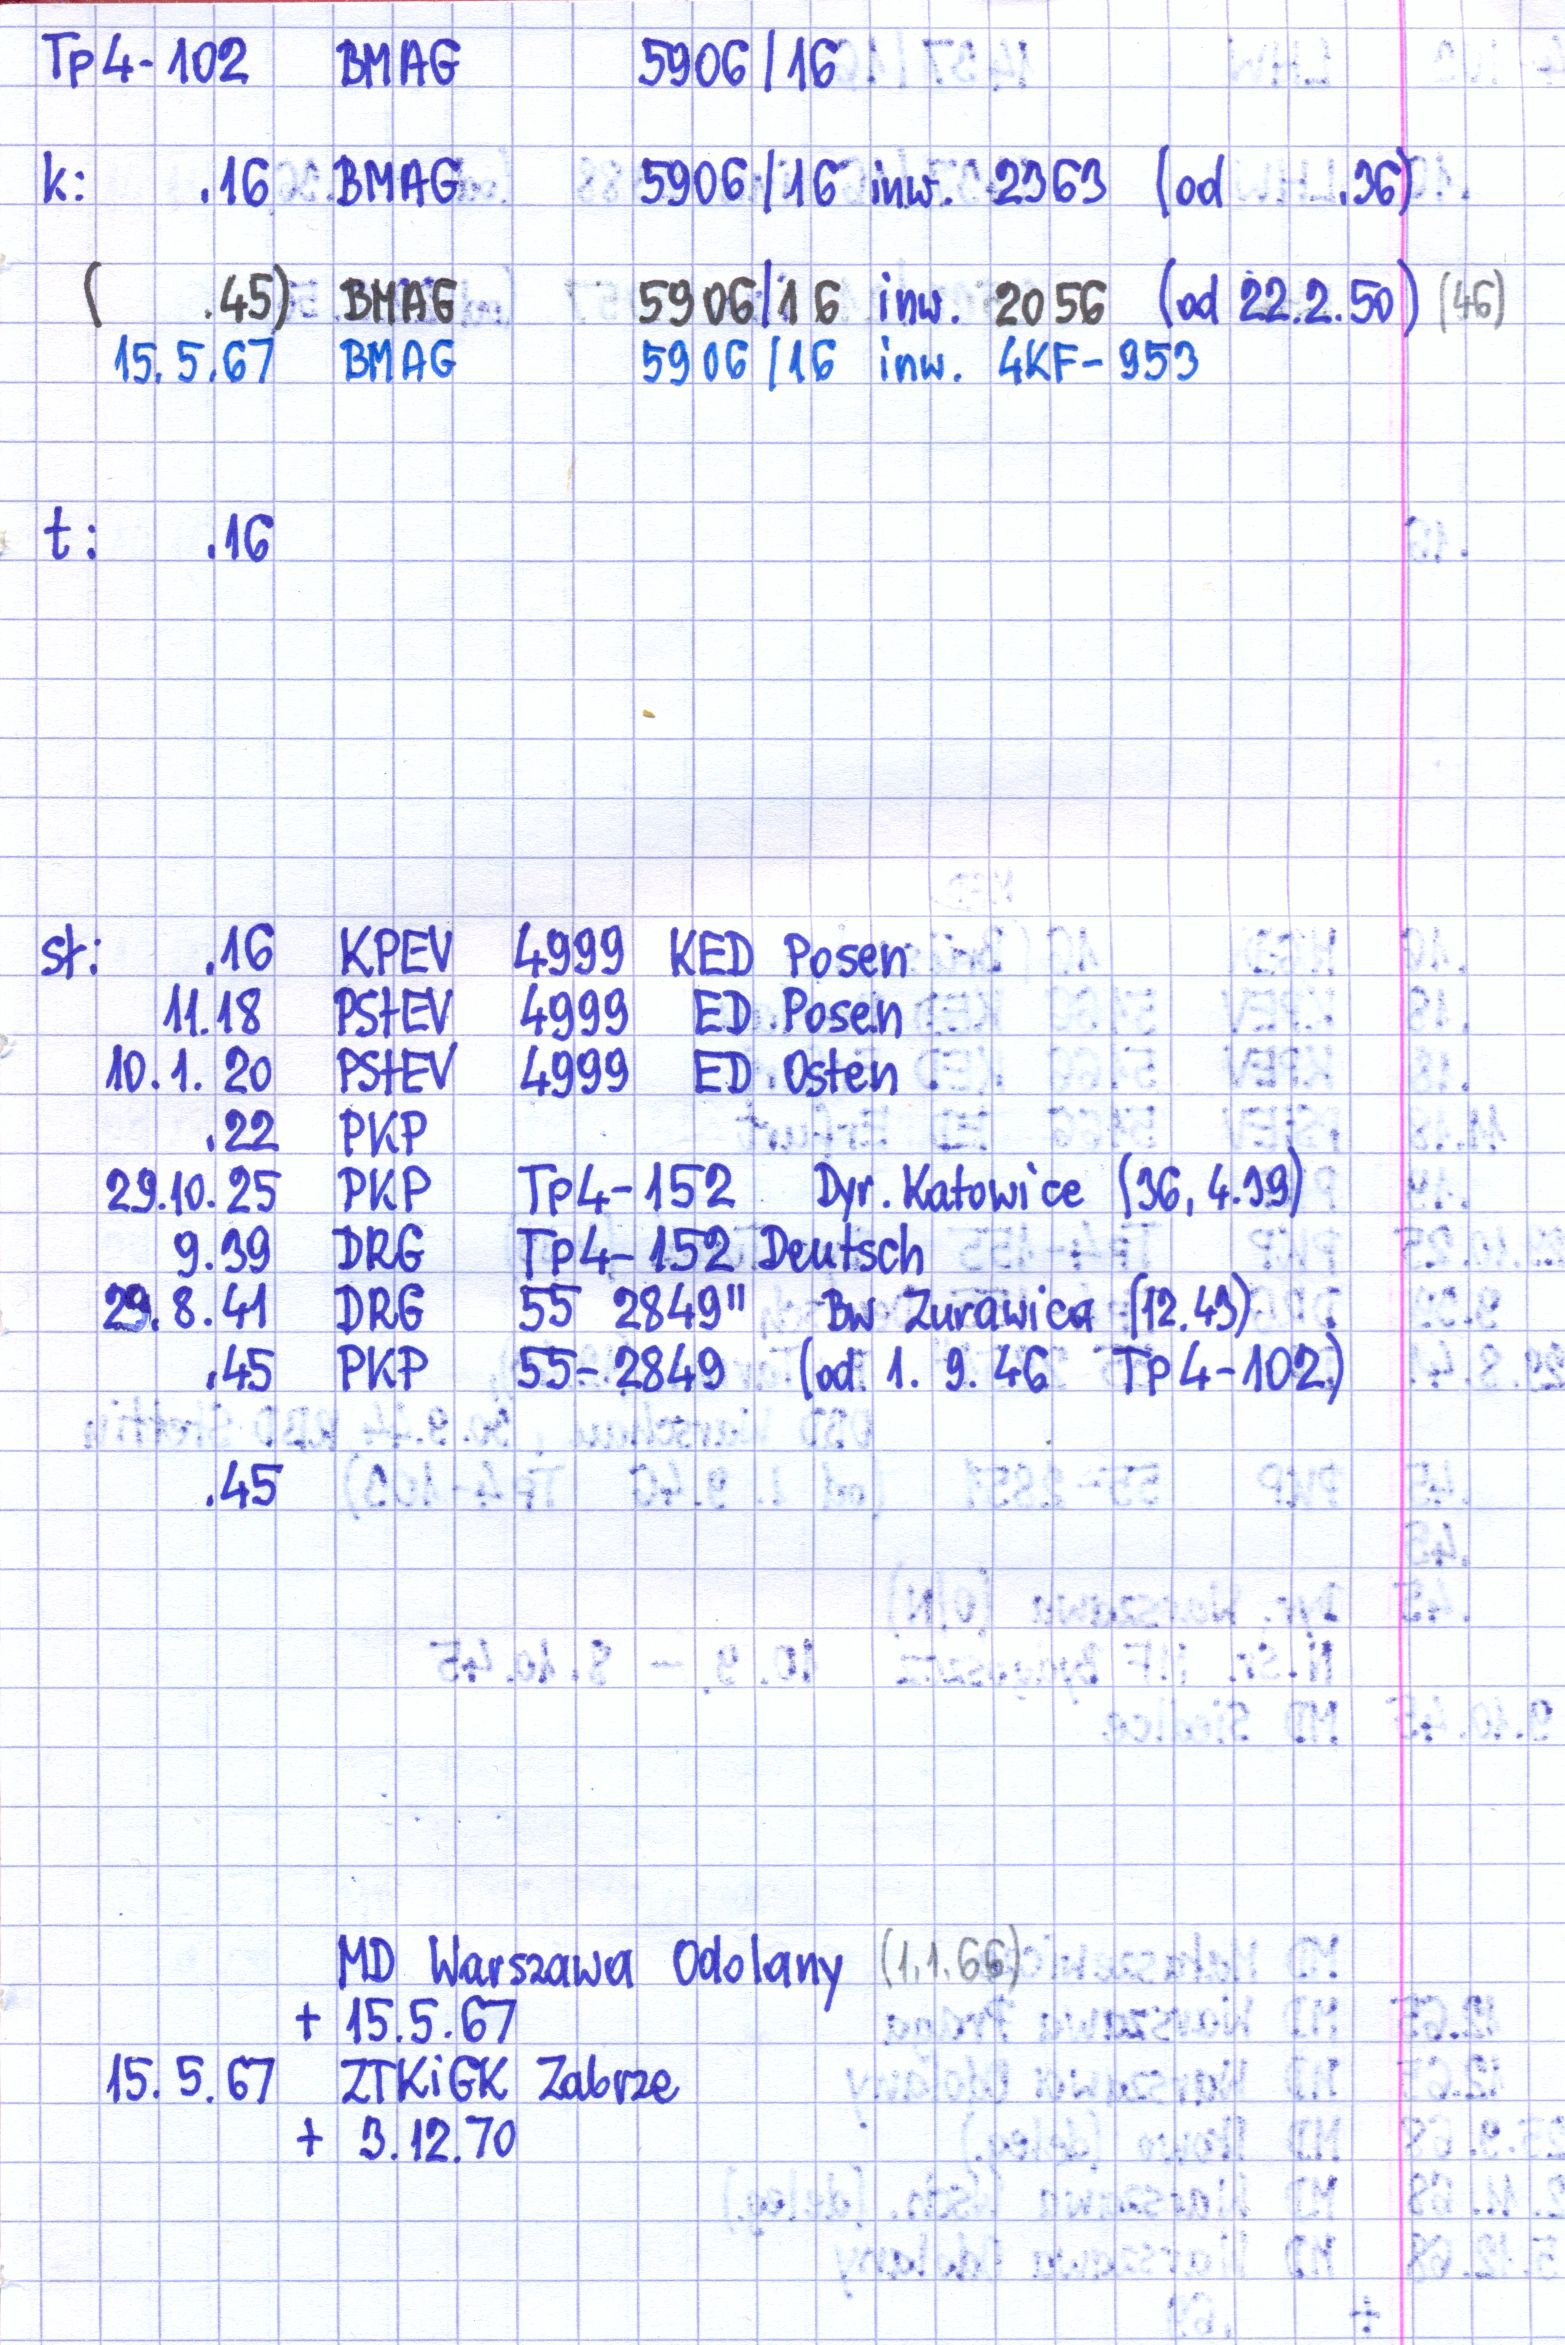 Tp4-102 BMAG 5906/16
k: .16 BMAG 5906/16 inw. 2363 (od .36)
( .45) BMAG 5906/16 inw. 2056 (od 22.2.50) (46)
15.5.67 BMAG 5906/16 inw. 4KF-953
t: .16
st: .16 KPEV 4999 KED Posen
11.18 PStEV 4999 ED Posen
10.1.20 PStEV 4999 ED Osten
.22 PKP
29.10.25 PKP Tp4-152 Dyr. Katowice (36, 4.39)
9.39 DRG Tp4-152 Deutsch
29.8.41 DRG 55 2849" Bw Zurawica (12.43)
.45 PKP 55-2849 (od 1.9.46 Tp4-102)
.45
MD Warszawa Odolany (1.1.66)
+ 15.5.67
15.5.67 ZTKiGK Zabrze
+ 3.12.70